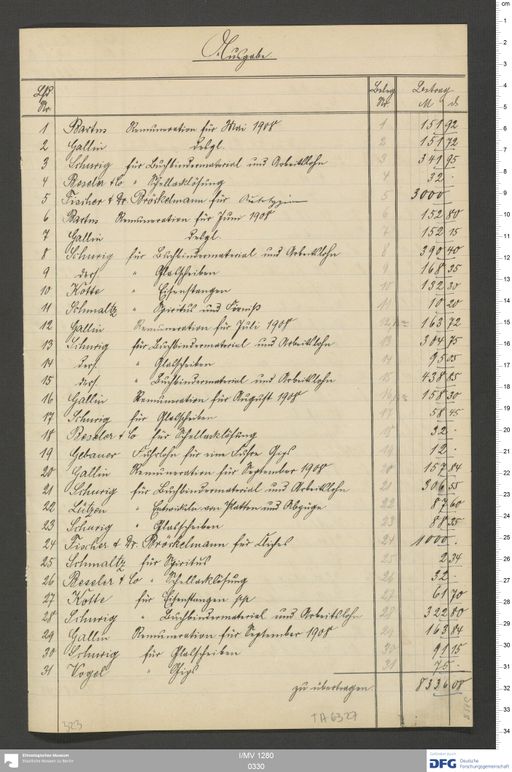 Ausgabe
Lfd Nr. Beleg Nr. Betrag
M d
1 Bartus Remuneration für Mai 1908 1 151 92
2 Gallin desgl. 2 151 72
3 Schurig für Buchbindermaterial und Arbeitslohn 3 341 95
4 Beseler & Co " Schellacklösung 4 32 -
5 Fischer & Dr. Bröckelmann für Autotypien 5 3000 -
6 Bartus Remuneration für Juni 1908 6 152 80
7 Gallin desgl. 7 152 15
8 Schurig für Buchbindermaterial und Arbeitslohn 8 390 40
9 ders " Glasscheiben 9 168 35
10 Kotte " Eisenstangen 10 132 30
11 Schmaltz " Spiritus und Firniß 11 10 20
12 Gallin Remuneration für Juli 1908 12 163 72
13 Schurig für Buchbindermaterial und Arbeitslohn 13 304 75
14 ders. " Glasscheiben 14 95 05
15 ders " Buchbindermaterial und Arbeitslohn 15 438 85
16 Gallin Remuneration für August 1908 16 158 30
17 Schurig für Glasscheiben 17 58 45
18 Beseler & Co für Schellacklösung 18 32 -
19 Gebauer Fuhrlohn für eine Fuhre Gips 19 12 -
20 Gallin Remuneration für September 1908 20 157 84
21 Schurig für Buchbindermaterial und Arbeitslohn 21 306 55
22 Lützen " Entwickeln von Platten und Abzüge 22 87 60
23 Schurig " Glasscheiben 23 88 25
24 Fischer & Dr. Bröckelmann für 24 1000 -
25 Schmaltz für Spiritus 25 2 34
26 Beseler & Co " Schellacklösung 26 32 -
27 Kotte für Eisenstangen pp 27 61 70
28 Schurig " Buchbindermaterial und Arbeitslohn 28 322 80
29 Gallin Remuneration für September 1908 29 163 84
30 Schurig für Glasscheiben 30 91 15
31 Vogel " Gips 31 75 -
zu übertragen 8336 08
323
TA 6327
I/MV 1280
0330
Ethnologisches Museum
Staatliche Museen zu Berlin
Gefördert durch
DFG Deutsche Forschungsgemeinschaft